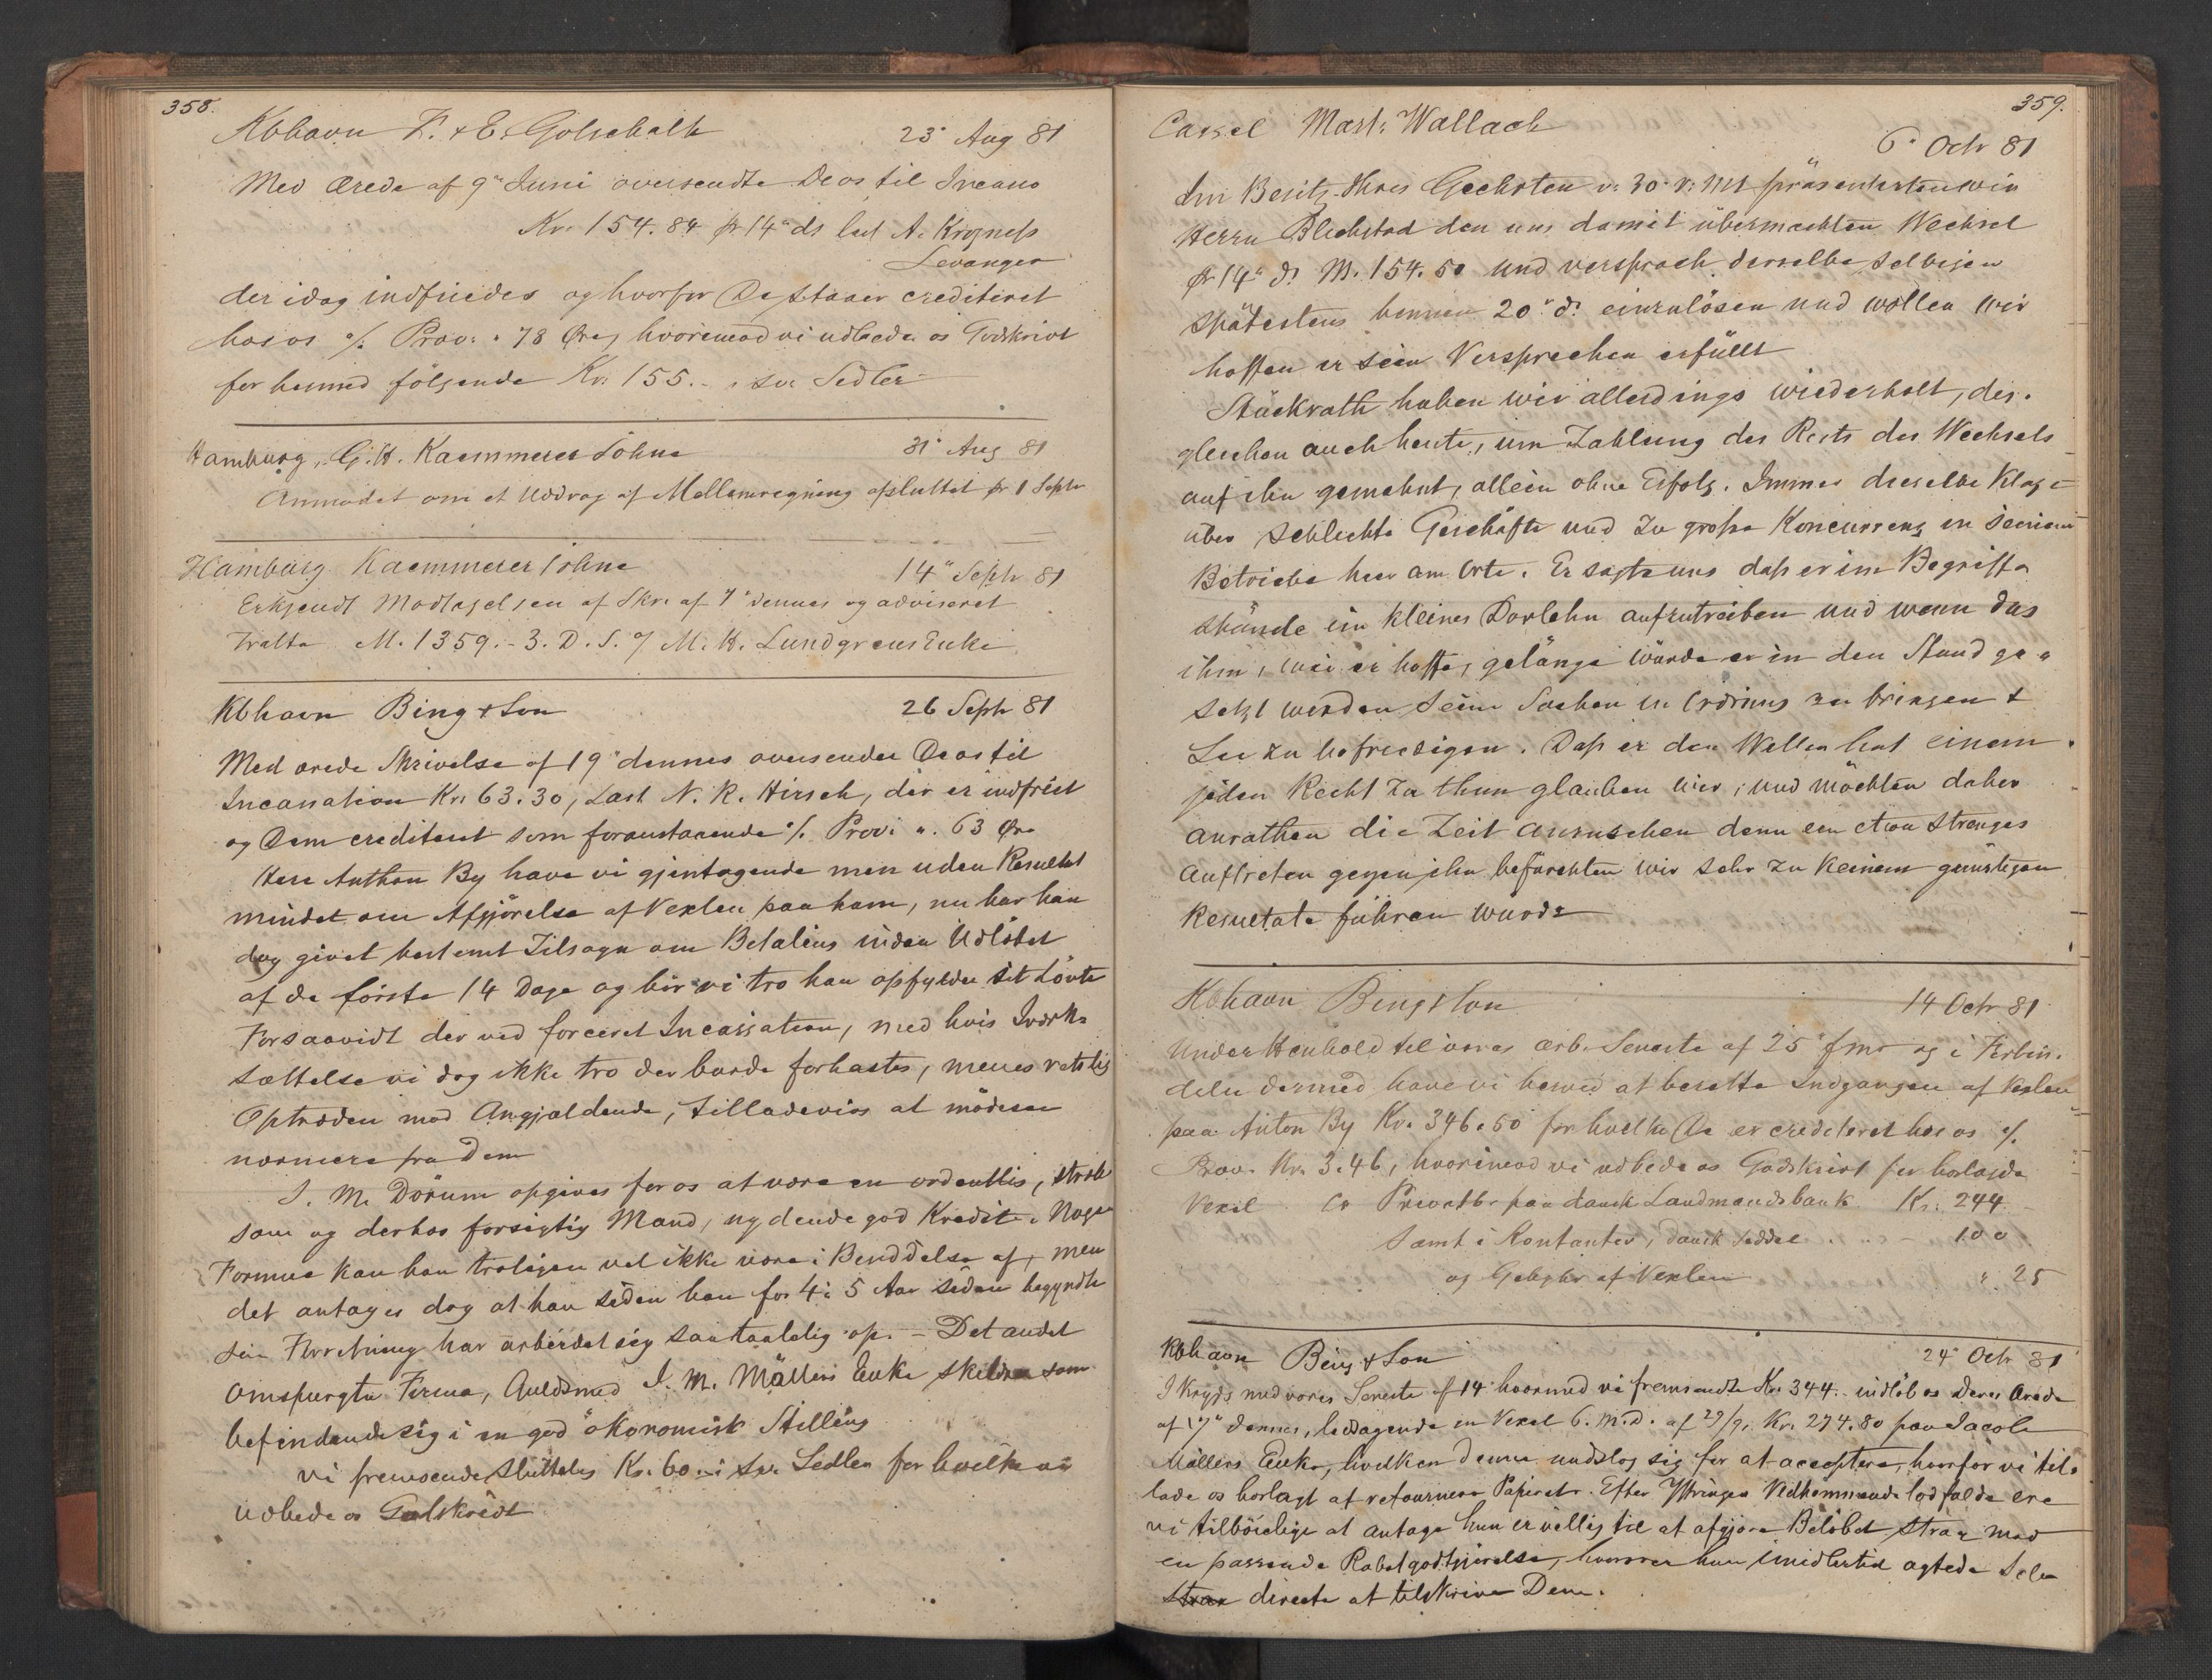 358.
Kbhavn F. & E. Gotschalk 23' Aug 81
Med ærede af 9' Juni oversendte De os til Incasso
Kr. 154.84 pr 14' ds last A. Krogness
Levanger
der idag indfriedes og hvorfor De staaer crediteret
hos os %. Prov. " 78 Øre, hvorimod vi udbede os Godskrivt
for hermed følgende Kr. 155.- i sv. Sedler
Hamburg, G. H. Kaemmerer Söhne 31' Aug 81
Anmodet om et Uddrag af Mellemregning afsluttet pr 1 Septr
Hamburg Kaemmerer Söhne 14" Septr 81
Erkjendt Modtagelsen af Skr. af 7' dennes og adviseret
Tratta M. 1359.- 3. D. S. % M. H. Lundgrens Enke
Kbhavn Bing & Søn 26 Septr 81
Med ærede Skrivelse af 19' dennes oversendte De os til
Incassation Kr. 63.30, Last N. R. Hirsch, der er indfriet
og Dem crediteret som foranstaaende %. Prov. ". 63 Øre
Herr Anthon By have vi gjentagende men uden Resultat
mindet om Afgjørelse af Vexlen paa ham, nu har han
dog givet bestemt Tilsagn om Betaling inden Udløbet
af de første 14 Dage og bør vi tro han opfylder sit Løvte
Forsaavidt der ved forceret Incassation, med hvis Iværk-
sættelse vi dog ikke tro der burde forhastes, menes retslig
Optræden mod Angjældende, tillade vi os at imødese
nærmere fra Dem
I. M. Dørum opgives for os at være en ordentlig, stræb
som og derhos forsigtig Mand, nydende god Kredit. Nogen
Formue kan han troligen vel ikke være i Besiddelse af, men
det antages dog at han siden han for 4 à 5 Aar siden begyndte
sin Forretning har arbeidet sig saa taalelig op. - Det andet
omspurgte Firma, Guldsmed I. M. Möllers Enke skildres som
befindende sig i en god økonomisk Stilling
Vi fremsende sluttelig Kr. 60.- i sv. Sedler for hvilke vi
udbede os Godskrivt
359.
Cassel Mart: Wallach
6' Octr 81
Im Besitz Ihres Geehrten v. 30' v. Mts präsentirten wir
Herrn Blekstad den uns damit übermachten Wechsel
pr 14' ds M. 154.50 und versprach derselbe selbigen
spätestens binnen 20' ds einzulösen und wollen wir
hoffen er sein Versprechen erfüllt
Stückrath haben wir allerdings wiederholt, des-
gleichen auch heute, um Zahlung des Rests des Wechsels
auf ihn gemahnt, allein ohne Erfolg. Immer dieselbe Klage
über schlechte Geschäfte und zu grosse Koncurrenz in seinem
Betriebe hier am Orte. Er sagte uns dass er im Begriffe
stände ein kleines Darlehn aufzutreiben und wenn das
ihm, wie er hoffe, gelänge würde er in den Stand ge-
setzt werden seine Sachen in Ordnung zu bringen &
Sie zu befriedigen. Dass er den Willen hat einem
jeden Recht zu thun glauben wir, und möchten daher
anrathen die Zeit anzusehen denn ein etwa strenges
Auftreten gegen ihn befürchten wir sehr zu keinem günstigen
Resultate führen würde
Kbhavn Bing & Søn 14 Octr 81
Under Henhold til vores ærb. Seneste af 25' fmd og i Forbin-
delse dermed have vi herved at berette Indgangen af Vexlen
paa Anton By Kr. 346.50 for hvilke De er crediteret hos os %.
Prov. Kr. 3.46, hvorimod vi udbede os Godskrivt for hoslagde
Vexel Co Privatbr paa dansk Landmandsbank Kr. 244.-
Samt i Kontanter, dansk Seddel - 100.
og Gebyhr af Vexlen " 25
Kbhavn Bing & Søn 24' Octr 81
I Kryds med vores Seneste af 14' hvormed vi fremsendte Kr. 344.- indløb os Deres Ærede
af 17' dennes, ledsagende en Vexel 6. M.D. af 29/9. Kr. 274.80 paa Jacob
Möllers Enke, hvilken denne undslog sig for at acceptere, hvorfor vi til-
lade os hoslagt at retournere Papiret. Efter Yttringer Vedkommende lod falde ere
vi tilbøielige at antage hun er villig til at afgjøre Beløbet strax mod
en passende Rabatgodtgjørelse, hvorover hun imidlertid agtede selv
strax directe at tilskrive Dem.